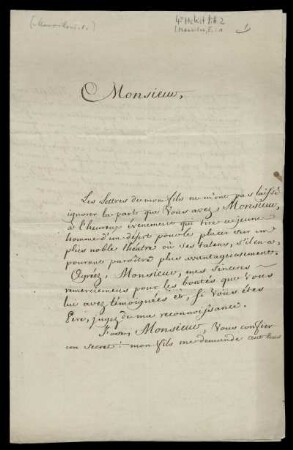 Monsieur,
Les Lettres de mon fils ne m'ont pas laissé
ignorer la part que Vous avez, Monsieur,
à l'heureux évenement qui tire ce jeune
homme d'un dépot pour le placer sur un
plus noble théatre où ses talens, s'il en a,
pourront paroître plus avantageusement.
Agréez, Monsieur, mes sinceres
remerciemens pour les bontés que Vous
lui avez témoignées et, si Vous êtes
Pere, jugez de ma reconnoissance.
Monsieur, Vous confier
un secret: mon fils me demande cent